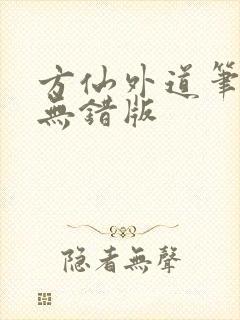 方仙外道筆
無錯版
隐者無聲